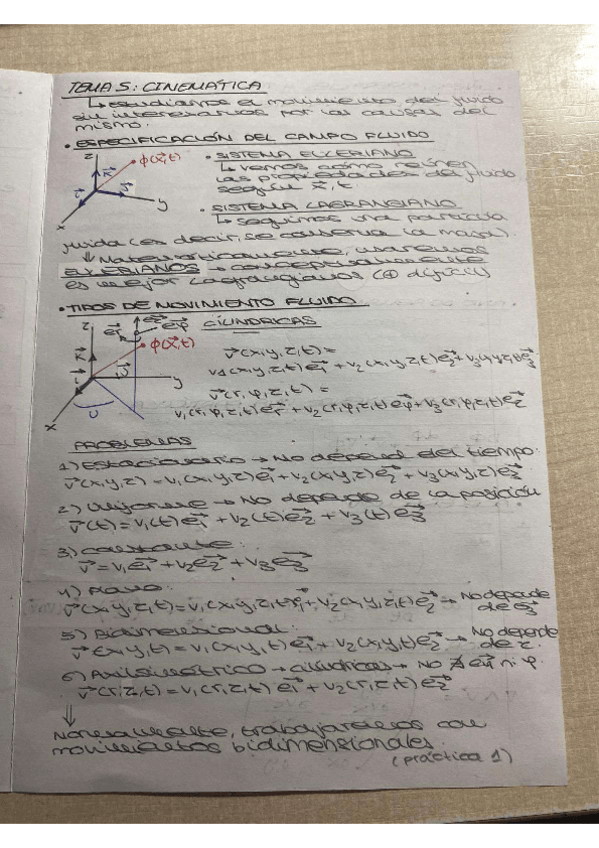 TEMA 5: CINEMÁTICA
↳ estudiamos el movimiento del fluido
sin interesarnos por las causas del
mismo.
• ESPECIFICACIÓN DEL CAMPO FLUIDO
z
k⃗
ϕ(x⃗,t)
i⃗
j⃗
x
y
• SISTEMA EULERIANO
↳ vemos cómo
las propiedades del fluido
según x⃗, t.
• SISTEMA LAGRANGIANO
↳ seguimos una partícula
fluida (es decir, se conserva la masa).
⇓ Matemáticamente, usaremos
EULERIANOS → conceptualmente
es mejor Lagrangianos (⊕ difícil)
• TIPOS DE MOVIMIENTO FLUIDO
CILÍNDRICAS
z
k⃗
ϕ(x⃗,t)
y
x
v⃗(x,y,z,t) =
v₁(x,y,z,t)e₁⃗ + v₂(x,y,z,t)e₂⃗ + v₃(x,y,z,t)e₃⃗
v⃗(r,φ,z,t) =
v₁(r,φ,z,t)er⃗ + v₂(r,φ,z,t)eφ⃗ + v₃(r,φ,z,t)ez⃗
PROBLEMAS
1) Estacionario → No depend del tiempo:
v⃗(x,y,z) = v₁(x,y,z)e₁⃗ + v₂(x,y,z)e₂⃗ + v₃(x,y,z)e₃⃗
2) Uniforme → No depende de la posición
v⃗(t) = v₁(t)e₁⃗ + v₂(t)e₂⃗ + v₃(t)e₃⃗
3) Constante:
v⃗ = v₁e₁⃗ + v₂e₂⃗ + v₃e₃⃗
4) Plano:
v⃗(x,y,z,t) = v₁(x,y,z,t)e₁⃗ + v₂(x,y,z,t)e₂⃗ → No depende
de e₃⃗
5) Bidimensional:
v⃗(x,y,t) = v₁(x,y,t)e₁⃗ + v₂(x,y,t)e₂⃗ → No depende
de z.
6) Axilsimétrico → cilíndricas → No ∄ eφ⃗ ni φ.
v⃗(r,z,t) = v₁(r,z,t)e₁⃗ + v₂(r,z,t)e₂⃗
⇓
Normalmente, trabajaremos con
movimientos bidimensionales.
(práctica 1)